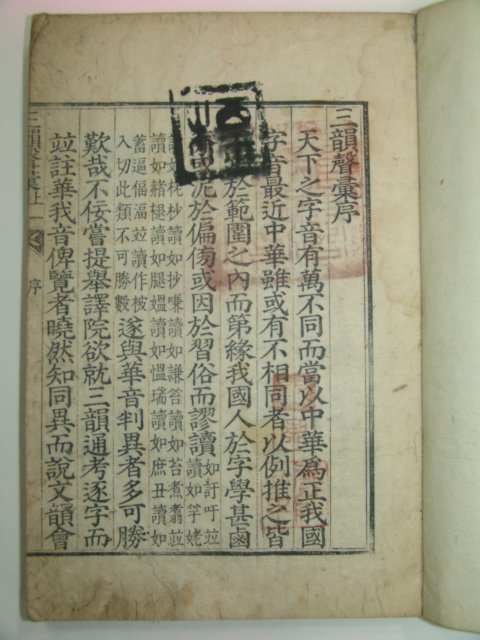 三韻聲彙序
天下之字音有萬不同而當以中華爲正我國
字音最近中華雖或有不相同者以例推之皆
於範圍之內而第緣我國人於字學甚鹵
泥於偏傍或因於習俗而謬讀
如訏吁並
讀如竽姥
杪讀如抄嗛讀如謙笞讀如苔煮翥並
讀如赭褪讀如腿媼讀如慍瑞讀如庶丑讀如
畜逼偪湢並讀作
入切此類不可勝數
遂與華音判異者多可勝
歎哉不佞嘗提舉譯院欲就三韻通考逐字而
並註華我音俾覽者曉然知同異而說文韻會
三韻聲彙上
序
一